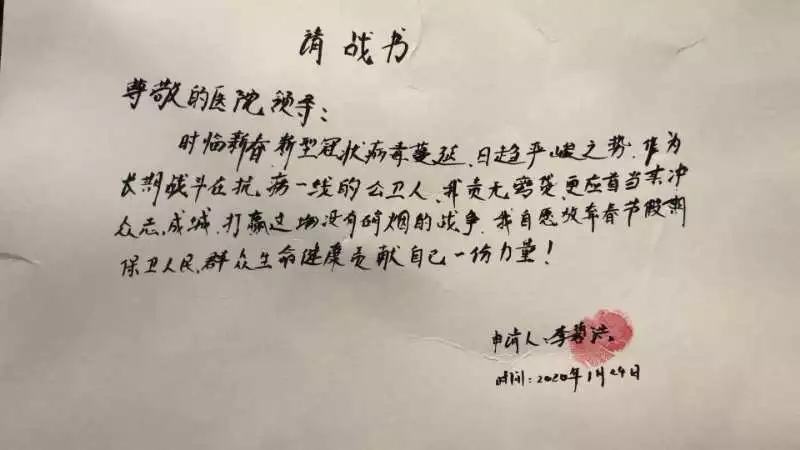 请战书
尊敬的医院领导：
时临新春,新型冠状病毒蔓延,日趋严峻之势,作为
长期战斗在抗病一线的公卫人,我责无旁贷,更应首当其冲
众志成城,打赢这场没有硝烟的战争,我自愿放弃春节假期
保卫人民,群众生命健康贡献自己一份力量!
申请人:李洪
时间:2020年1月24日